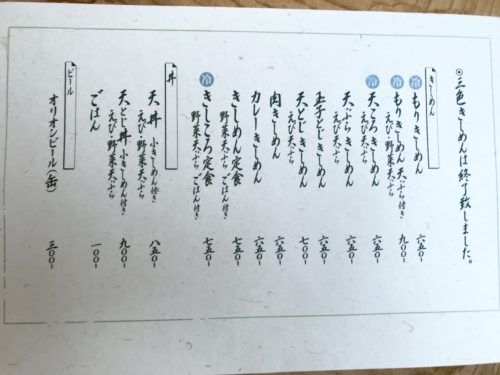 ◎三色きしめんは終了致しました。
きしめん
冷 もりきしめん 六五〇-
冷 もりきしめん天ぷら付き 九〇〇-
冷 天ころきしめん 六五〇-
えび天ぷら
天ぷらきしめん 六五〇-
えび天ぷら
玉子とじきしめん 六五〇-
天とじきしめん 七〇〇-
えび天ぷら
肉きしめん 六五〇-
カレーきしめん 六五〇-
きしめん定食 七五〇-
野菜天ぷらごはん付き
冷 きしころ定食 七五〇-
野菜天ぷらごはん付き
丼
天丼 小きしめん付き 八五〇-
えび・野菜天ぷら
天とじ丼 小きしめん付き 九〇〇-
えび・野菜天ぷら
ごはん 一〇〇-
ビール
オリオンビール(缶) 三〇〇-